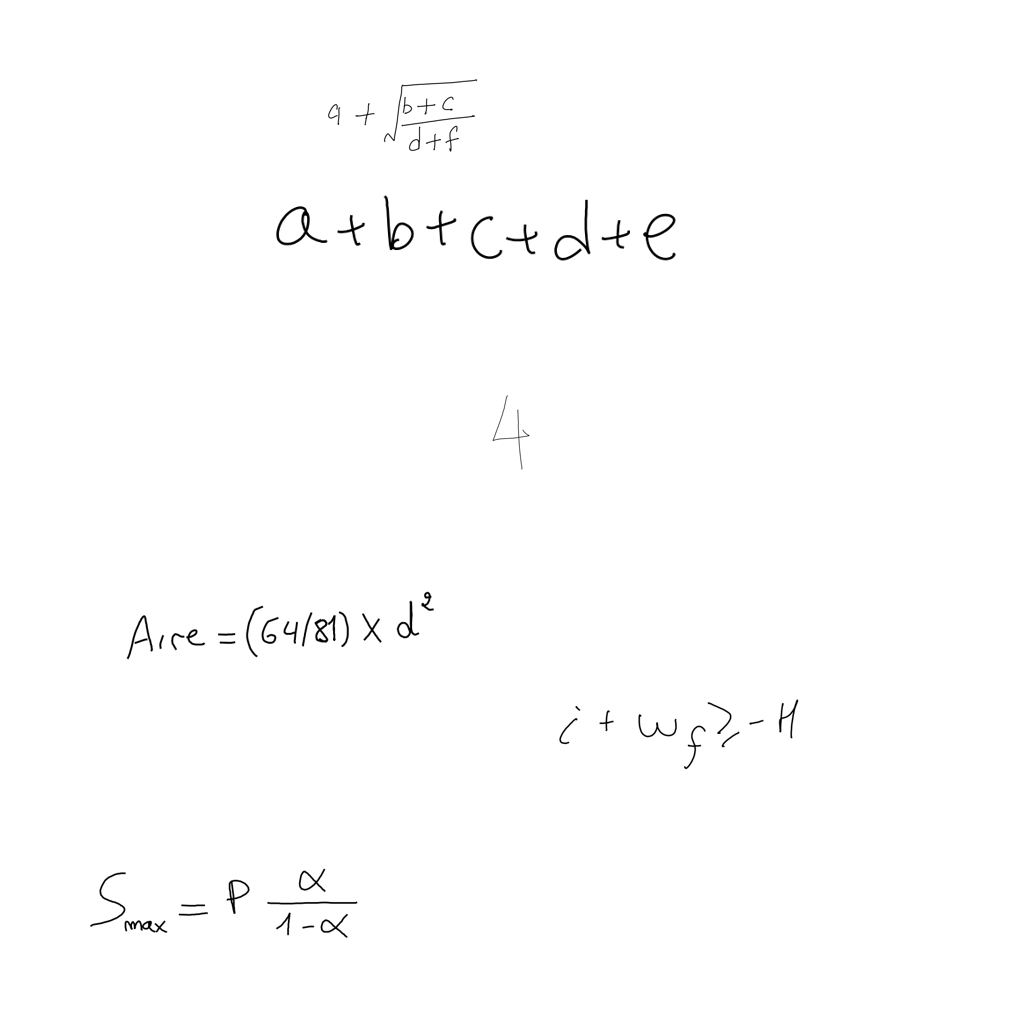 a + √((b+c)/(d+f))
a+b+c+d+e
4
Aire = (64/81) X d²
i + w_f ≥ -H
S_max = P α/(1-α)